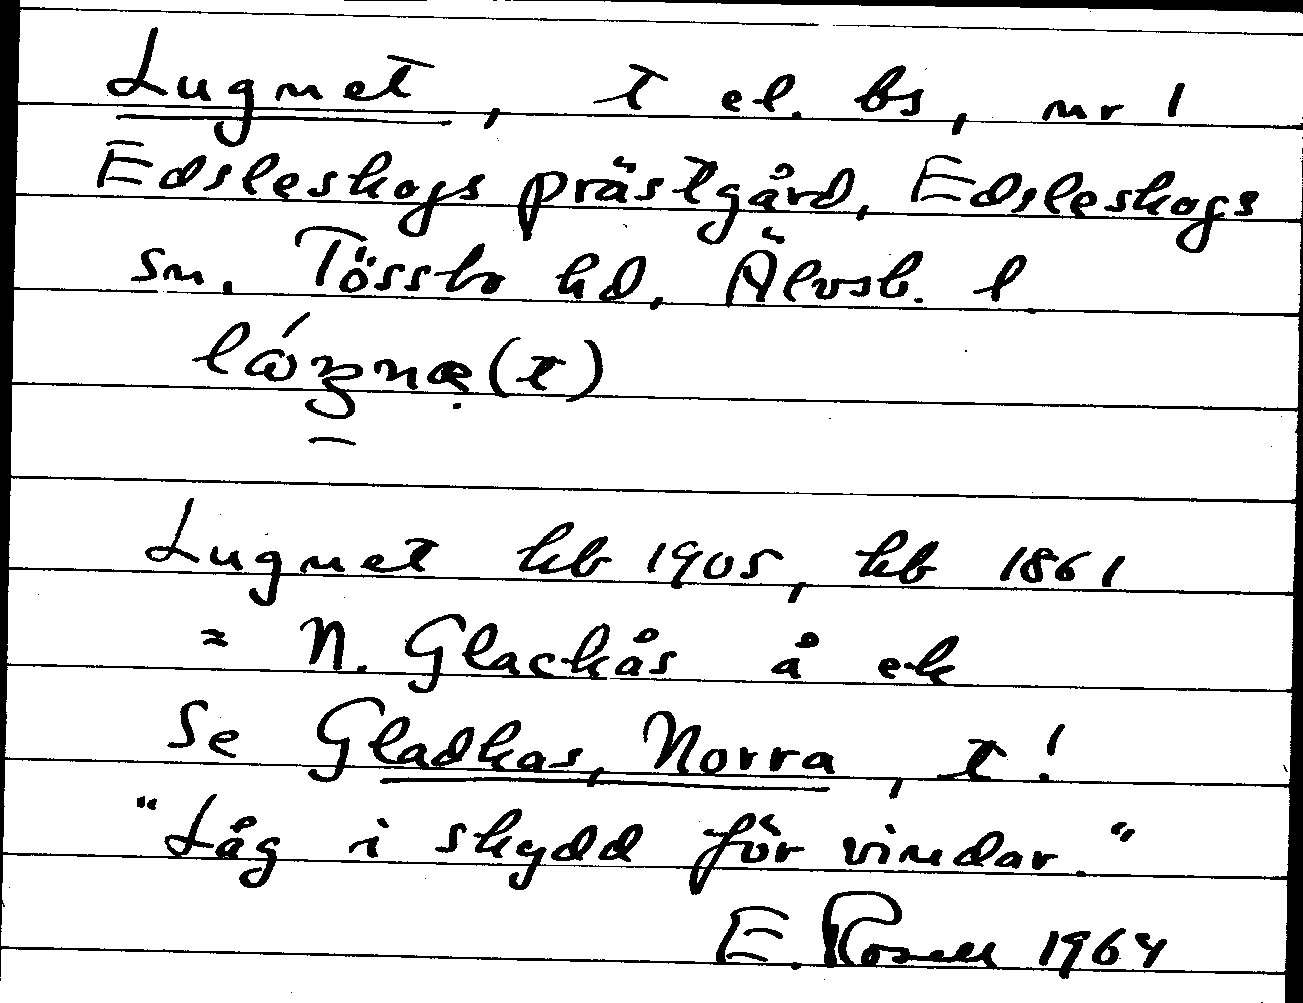 Lugnet, t el. bs, nr 1
Edsleskogs prästgård, Edsleskogs
sn. Tössbo hd, Älvsb. l
Lugnet kb 1905, kb 1861
= N. Glackås å ek
Se Gladkas, Norra, t!
"Låg i skydd för vindar."
E. Rosell 1964